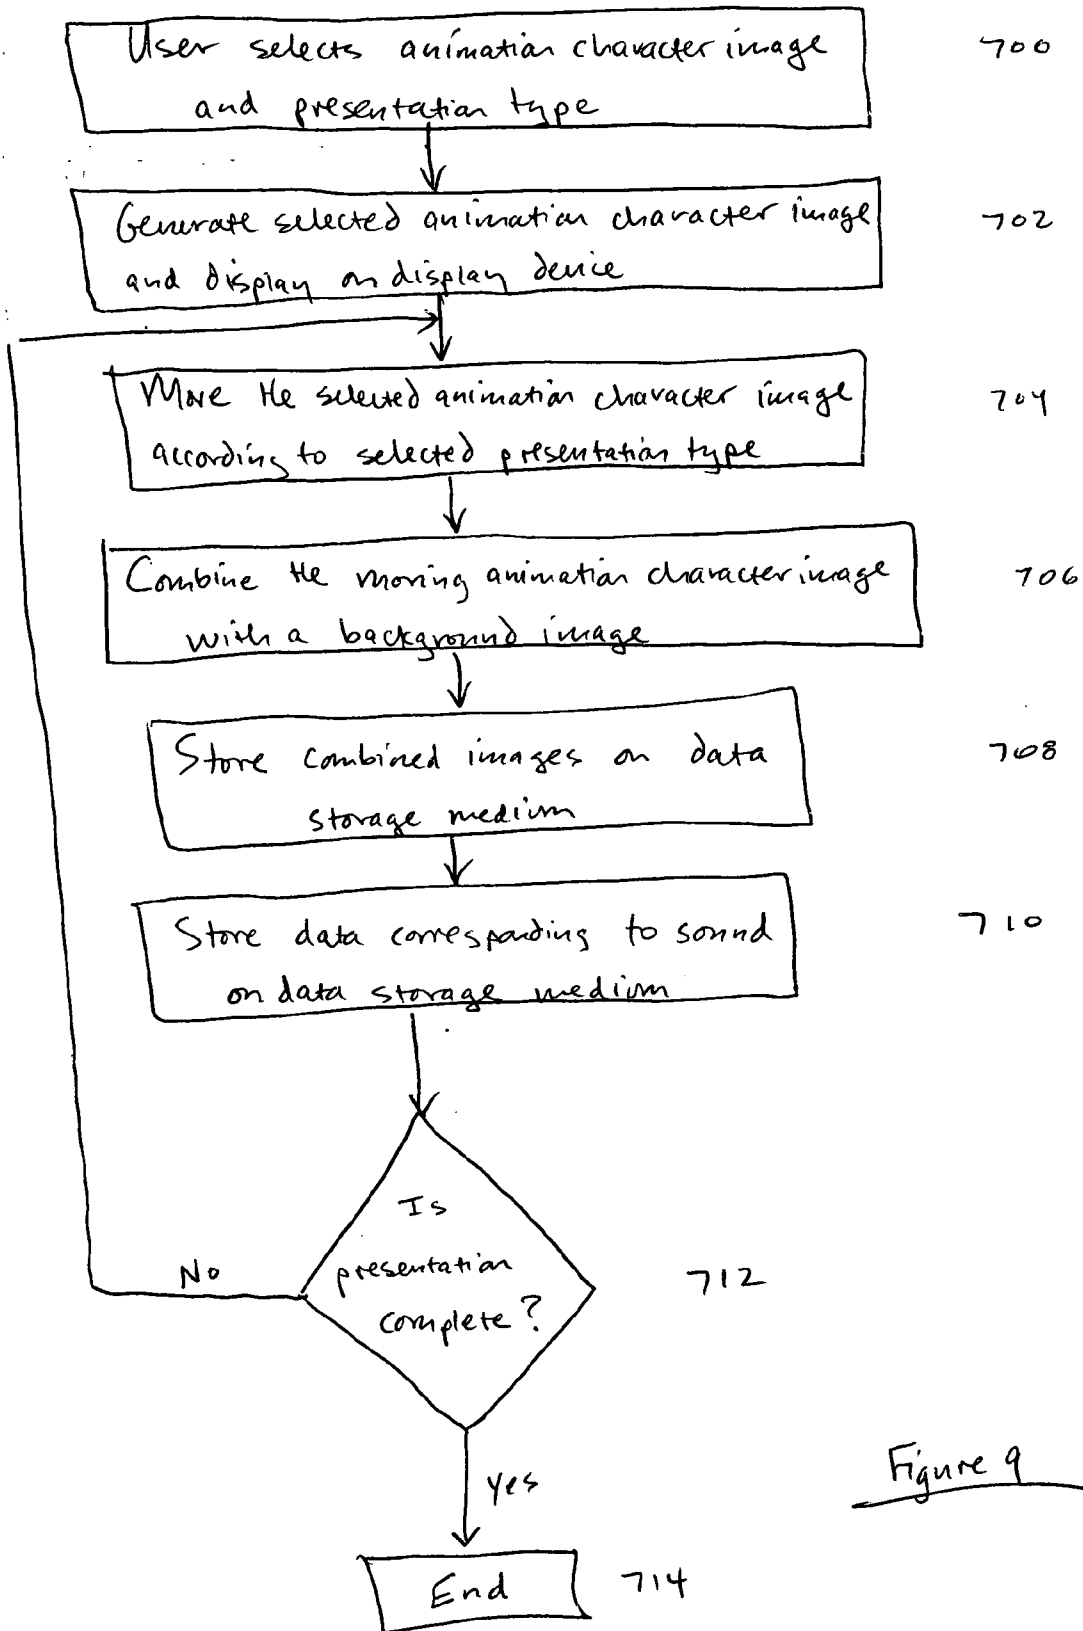 User selects animation character image
and presentation type
700
Generate selected animation character image
and display on display device
702
Move the selected animation character image
according to selected presentation type
704
Combine the moving animation character image
with a background image
706
Store combined images on data
storage medium
708
Store data corresponding to sound
on data storage medium
710
Is
presentation
complete?
712
No
yes
Figure 9
End
714